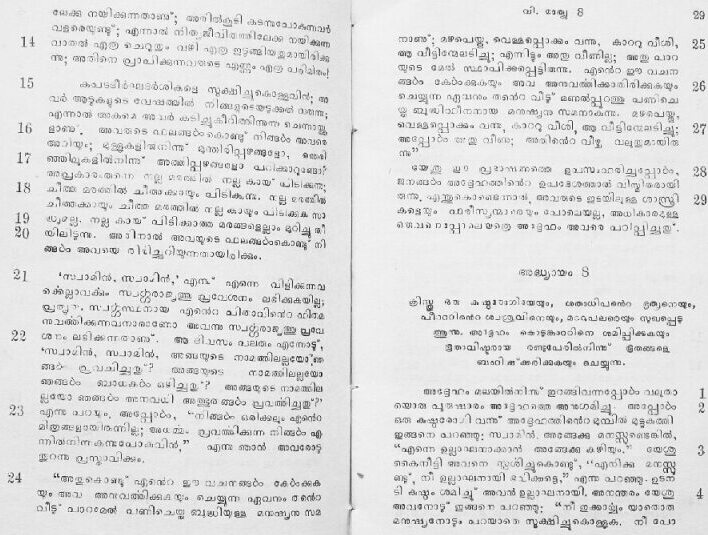 ലേക്കു നയിക്കുന്നതാണ്; അതിൽകൂടി കടന്നുപോകുന്നവർ
വളരെയുണ്ട്; എന്നാൽ നിത്യജീവിതത്തിലേക്കു നയിക്കുന്ന
14 വാതൽ എത്ര ചെറുതും വഴി എത്ര ഇടുങ്ങിയതുമായിരിക്കു
ന്നു; അതിനെ പ്രാപിക്കുന്നവരുടെ എണ്ണം എത്ര പരിമിതം!
15 കപടദീർഘദർശികളെ സൂക്ഷിച്ചുകൊള്ളുവിൻ; അ
വർ ആടുകളുടെ വേഷത്തിൽ നിങ്ങളുടെയടുക്കൽ വരുന്നു;
എന്നാൽ അകമെ അവർ കടിച്ചുകീറിത്തിന്നുന്ന ചെന്നായ്ക്ക
16 ളാണ്. അവരുടെ ഫലങ്ങൾകൊണ്ട് നിങ്ങൾ അവരെ
അറിയും; മുള്ളുകളിൽനിന്ന് മുന്തിരിപ്പഴങ്ങളോ, ഞെരി
17 ഞ്ഞിലുകളിൽനിന്ന് അത്തിപ്പഴങ്ങളോ പറിക്കാറുണ്ടോ?
അപ്രകാരംതന്നെ നല്ല മരത്തിൽ നല്ല കായ് പിടിക്കുന്നു;
18 ചീത്ത മരത്തിൽ ചീത്തക്കായും പിടിക്കുന്നു. നല്ല മരത്തിൽ
ചീത്തക്കായും ചീത്ത മരത്തിൽ നല്ല കായും പിടിക്കുക സാ
19 ദ്ധ്യമല്ല. നല്ല കായ് പിടിക്കാത്ത മരങ്ങളെല്ലാം മുറിച്ചു തീ
20 യിലിടുന്നു. അതിനാൽ അവയുടെ ഫലങ്ങൾകൊണ്ട് നി
ങ്ങൾ അവയെ തിരിച്ചറിയുന്നതായിരിക്കും.
21 ‘സ്വാമിൻ, സ്വാമിൻ,’ എന്നു് എന്നെ വിളിക്കുന്നവ
ക്കെല്ലാവർക്കും സ്വർഗ്ഗരാജ്യത്തു പ്രവേശനം ലഭിക്കുകയില്ല;
പ്രത്യുത, സ്വർഗ്ഗസ്ഥനായ എന്റെ പിതാവിന്റെ ഹിതമ
നുവർത്തിക്കുന്നവനാരാണോ അവന്നു സ്വർഗ്ഗരാജ്യത്തു പ്രവേ
22 ശനം ലഭിക്കുന്നതാണ്. ആ ദിവസം പലരും എന്നോടു്,
‘സ്വാമിൻ, സ്വാമിൻ, അങ്ങയുടെ നാമത്തിലല്ലയോ ഞ
ങ്ങൾ പ്രവചിച്ചതു്? അങ്ങയുടെ നാമത്തിലല്ലയോ
ഞങ്ങൾ ബാധകൾ ഒഴിച്ചതു്? അങ്ങയുടെ നാമത്തില
ല്ലയോ ഞങ്ങൾ അനവധി അത്ഭുതങ്ങൾ പ്രവർത്തിച്ചതു്?’
23 എന്നു പറയും. അപ്പോൾ, “നിങ്ങൾ ഒരിക്കലും എന്റെ
മിത്രങ്ങളായിരുന്നില്ല; അധർമ്മം പ്രവർത്തിക്കുന്ന നിങ്ങൾ എ
ന്നിൽനിന്നകന്നുപോകുവിൻ,” എന്നു ഞാൻ അവരോടു
തുറന്നു പ്രസ്താവിക്കും.
24 “അതുകൊണ്ടു് എന്റെ ഈ വചനങ്ങൾ കേൾക്കുക
യും അവ അനുവർത്തിക്കുകയും ചെയ്യുന്ന ഏവനും തന്റെ
വീടു് പാറമേൽ പണിചെയ്ത ബുദ്ധിയുള്ള മനുഷ്യനു സമ
വി. മത്തായി 8 29
നാണ്; മഴപെയ്തു, വെള്ളപ്പൊക്കം വന്നു, കാററു വീശി, 25
ആ വീട്ടിന്മേലടിച്ചു; എന്നിട്ടും അതു വീണില്ല; അതു പാറ
യുടെ മേൽ സ്ഥാപിക്കപ്പെട്ടിരുന്നു. എന്റെ ഈ വചന
ങ്ങൾ കേൾക്കുകയും അവ അനുവർത്തിക്കാതിരിക്കുകയും 26
ചെയ്യുന്ന ഏവനും തന്റെ വീടു് മണൽപ്പുറത്തു പണിചെ
യ്ത ബുദ്ധിഹീനനായ മനുഷ്യനു സമാനനാകുന്നു. മഴപെയ്തു,
വെള്ളപ്പൊക്കം വന്നു, കാററു വീശി, ആ വീട്ടിന്മേലടിച്ചു; 27
അപ്പോൾ അതു വീണു; അതിന്റെ വീഴ്ച വലുതുമായിരു
ന്നു”
യേശു ഈ പ്രഭാഷണത്തെ ഉപസംഹരിച്ചപ്പോൾ, 28
ജനങ്ങൾ അദ്ദേഹത്തിന്റെ ഉപദേശത്താൽ വിസ്മിതരായി
രുന്നു. എന്തുകൊണ്ടെന്നാൽ, അവരുടെ ഇടയിലുള്ള ശാസ്ത്രി 29
കളെയും ഫരീസ്യന്മാരെയും പോലെയല്ല, അധികാരമുള്ള
ഒരുവനെപ്പോലെയത്രെ അദ്ദേഹം അവരെ പഠിപ്പിച്ചതു്.
അദ്ധ്യായം 8
ക്രിസ്തു ഒരു കുഷ്ഠരോഗിയെയും, ശതാധിപന്റെ ഭൃത്യനെയും,
പീറററിന്റെ ശ്വശ്രുവിനെയും, മററുപലരെയും സുഖപ്പെടു
ത്തുന്നു. അദ്ദേഹം കൊടുങ്കാററിനെ ശമിപ്പിക്കുകയും
ഭൂതാവിഷ്ടരായ രണ്ടുപേരിൽനിന്നു് ഭൂതങ്ങളെ
ബഹിഷ്ക്കരിക്കുകയും ചെയ്യുന്നു.
അദ്ദേഹം മലയിൽനിന്നു് ഇറങ്ങിവന്നപ്പോൾ വലുതാ 1
യൊരു പുരുഷാരം അദ്ദേഹത്തെ അനുഗമിച്ചു. അപ്പോൾ 2
ഒരു കുഷ്ഠരോഗി വന്നു് അദ്ദേഹത്തിന്റെ മുമ്പിൽ മുട്ടുകുത്തി
ഇങ്ങനെ പറഞ്ഞു: സ്വാമിൻ, അങ്ങേക്കു മനസ്സുണ്ടെങ്കിൽ,
“എന്നെ ഉല്ലാഘനാക്കാൻ അങ്ങേക്കു കഴിയും.” യേശു 3
കൈനീട്ടി അവനെ സ്പർശിച്ചുകൊണ്ടു്, “എനിക്കു മനസ്സു
ണ്ടു്, നീ ഉല്ലാഘനായി ഭവിക്കട്ടെ,” എന്നു പറഞ്ഞു. ഉടന
ടി കുഷ്ഠം ശമിച്ച് അവൻ ഉല്ലാഘനായി. അനന്തരം യേശു 4
അവനോടു് ഇങ്ങനെ പറഞ്ഞു: “നീ ഇക്കാര്യം യാതൊരു
മനുഷ്യനോടും പറയാതെ സൂക്ഷിച്ചുകൊള്ളുക. നീ പോ